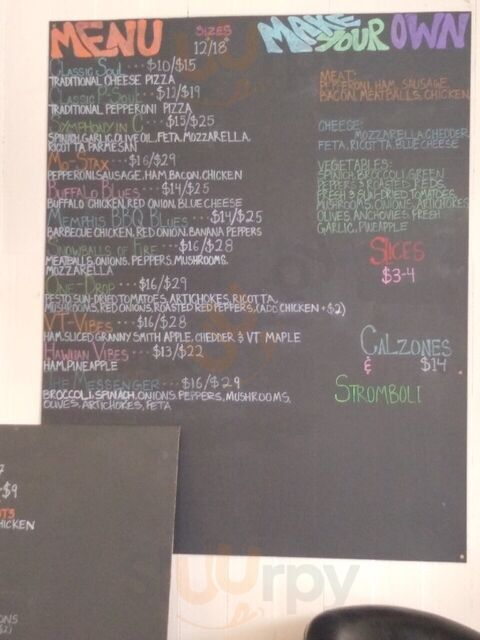 MENU
SIZES
12/18"
CLASSIC SOUL ··· $10/$15
TRADITIONAL CHEESE PIZZA
CLASSIC P-SOUL ··· $12/$19
TRADITIONAL PEPPERONI PIZZA
SYMPHONY IN C ··· $15/$25
SPINISH, GARLIC, OLIVE OIL, FETA, MOZZARELLA,
RICOTTA PARMESAN
MO-STAX ··· $16/$29
PEPPERONI, SAUSAGE, HAM, BACON, CHICKEN
BUFFALO BLUES ··· $14/$25
BUFFALO CHICKEN, RED ONION, BLUE CHEESE
MEMPHIS BBQ BLUES ··· $14/$25
BARBECUE CHICKEN, RED ONION, BANANA PEPPERS
SNOWBALLS OF FIRE ··· $16/$28
MEATBALLS, ONIONS, PEPPERS, MUSHROOMS,
MOZZARELLA
ONE-DROP ··· $16/$29
PESTO, SUN-DRIED TOMATOES, ARTICHOKES, RICOTTA,
MUSHROOMS, RED ONIONS, ROASTED RED PEPPERS, (ADD CHICKEN + $2)
VT VIBES ··· $16/$28
HAM, SLICED GRANNY SMITH APPLE, CHEDDER & VT MAPLE
HAWIIAN VIBES ··· $13/$22
HAM, PINEAPPLE
THE MESSENGER ··· $16/$29
BROCCOLI, SPINACH, ONIONS, PEPPERS, MUSHROOMS,
OLIVES, ARTICHOKES, FETA
MAKE YOUR OWN
MEAT:
PEPPERONI, HAM, SAUSAGE,
BACON, MEATBALLS, CHICKEN
CHEESE:
MOZZARELLA, CHEDDER,
FETA, RICOTTA, BLUE CHEESE
VEGETABLES:
SPINISH, BROCCOLI, GREEN
PEPPERS & ROASTED REDS,
FRESH & SUN-DRIED TOMATOES,
MUSHROOMS, ONIONS, ARTICHOKES
OLIVES, ANCHOVIES, FRESH
GARLIC, PINEAPPLE
SLICES
$3-4
CALZONES
& $14
STROMBOLI
$9
HICKEN
Suurpy